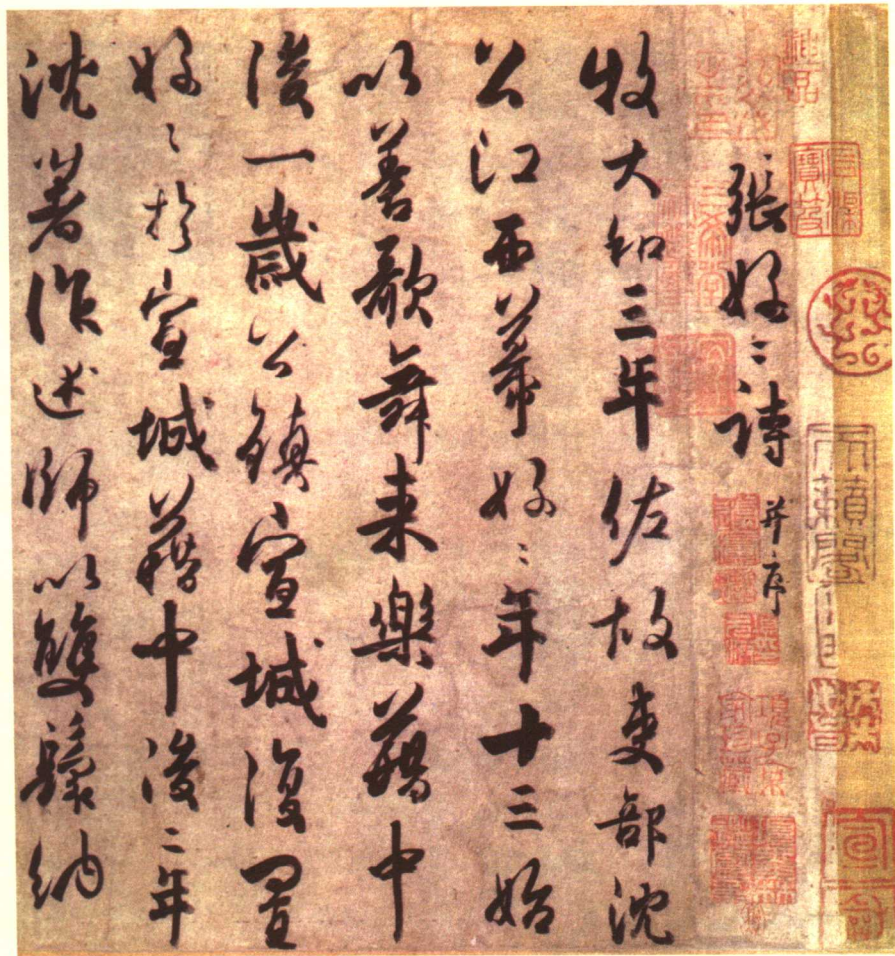 張好〻詩 并序
牧大和三年佐故吏部沈
公江西幕好〻年十三始
以善歌舞来樂籍中
後一歲公鎮宣城復置
好〻於宣城籍中後二年
沈著作述師以雙鬟納